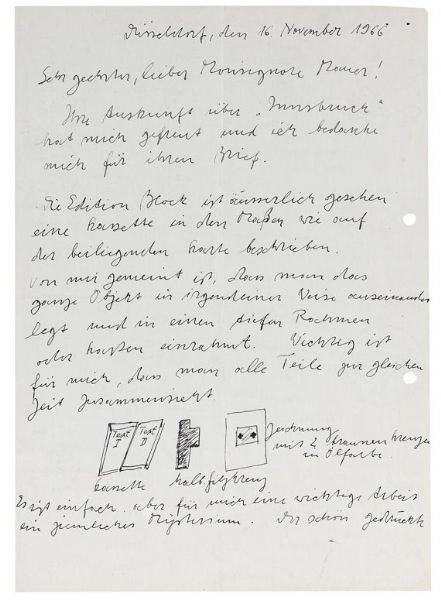 Düsseldorf, den 16 November 1966
Sehr geehrter, lieber Monsignore Mauer!
Ihre Auskunft über „Innsbruck“
hat mich gefreut und ich bedanke
mich für ihren Brief.
Die Edition Block ist äusserlich gesehen
eine Kassette in den Maßen wie auf
der beiliegenden Karte beschrieben.
von mir gemeint ist, dass man das
ganze Objekt in irgendeiner Weise auseinander
legt und in einen tiefen Rahmen
oder Kasten einrahmt. Wichtig ist
für mich, dass man alle Teile zur gleichen
Zeit zusammensieht
Text I
Text II
Zeichnung
mit 2 braunen Kreuzen
in Ölfarbe.
Kassette
Halbfilzkreuz
Es ist einfach aber für mich eine wichtige Arbeit
ein ziemliches Mysterium. Der schön gedruckte